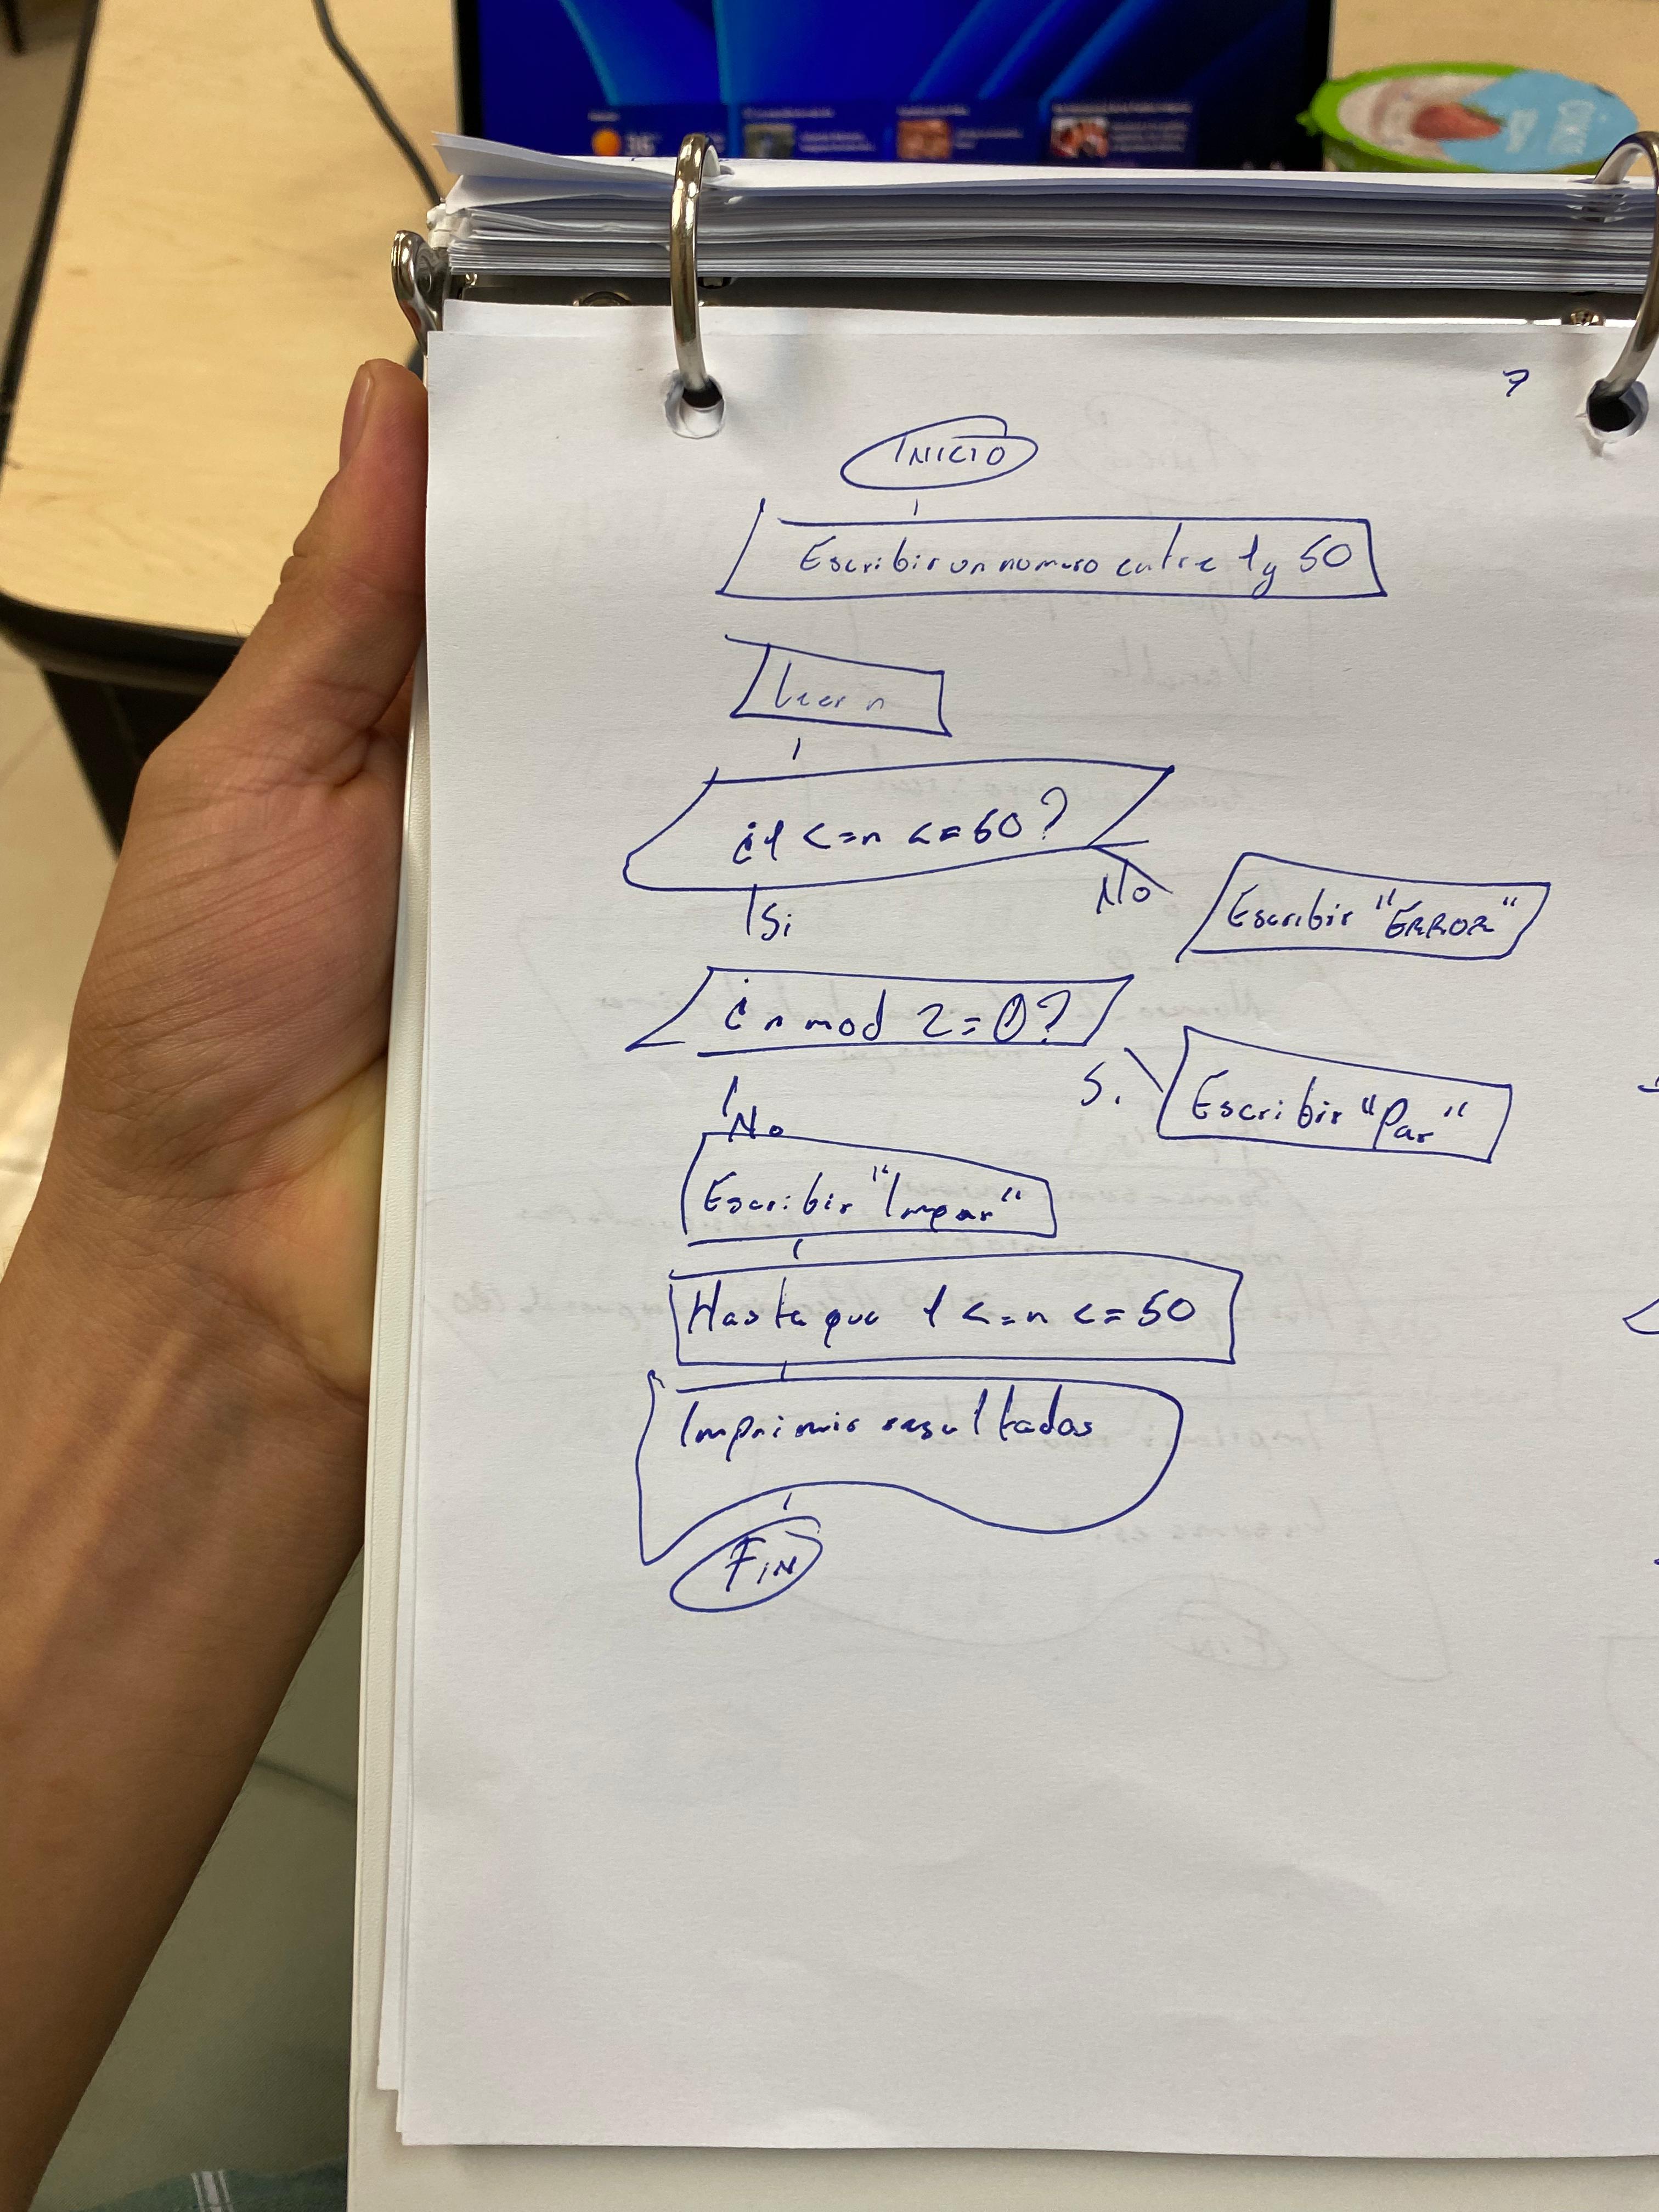 36°
7
INICIO
Escribir un numero entre 1 y 50
Leer n
¿1 <= n <= 50?
Si
No
Escribir "ERROR"
¿n mod 2 = 0?
Si
Escribir "Par"
No
Escribir "Impar"
Hasta que 1 <= n <= 50
Imprimir resultados
FIN